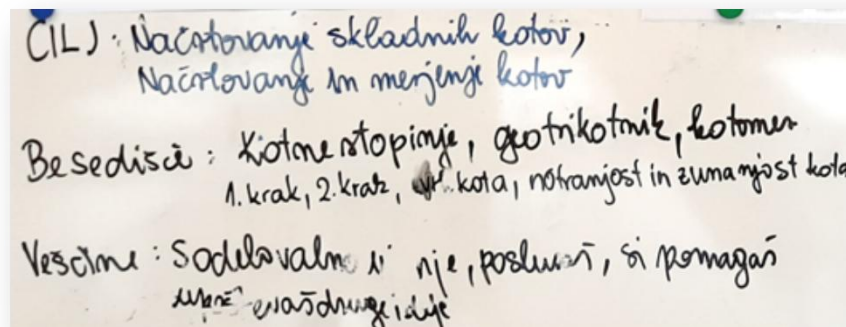 CILJ: Načrtovanje skladnih kotov,
Načrtovanje in merjenje kotov
Besedišče: Kotne stopinje, geotrikotnik, kotomer
1. krak, 2. krak, kota, notranjost in zunanjost kota
Veščine: Sodelovalno nje, posluš, si pomagaš
druge ideje